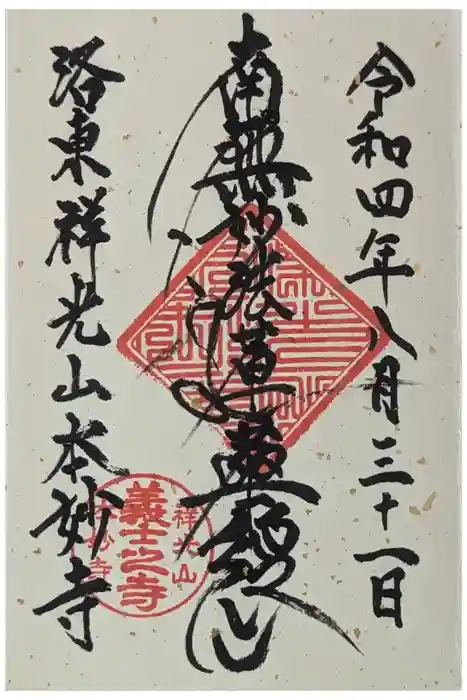 令和四年八月三十一日
南無妙法蓮華経
洛東祥光山本妙寺
祥光山
義士之寺
本妙寺